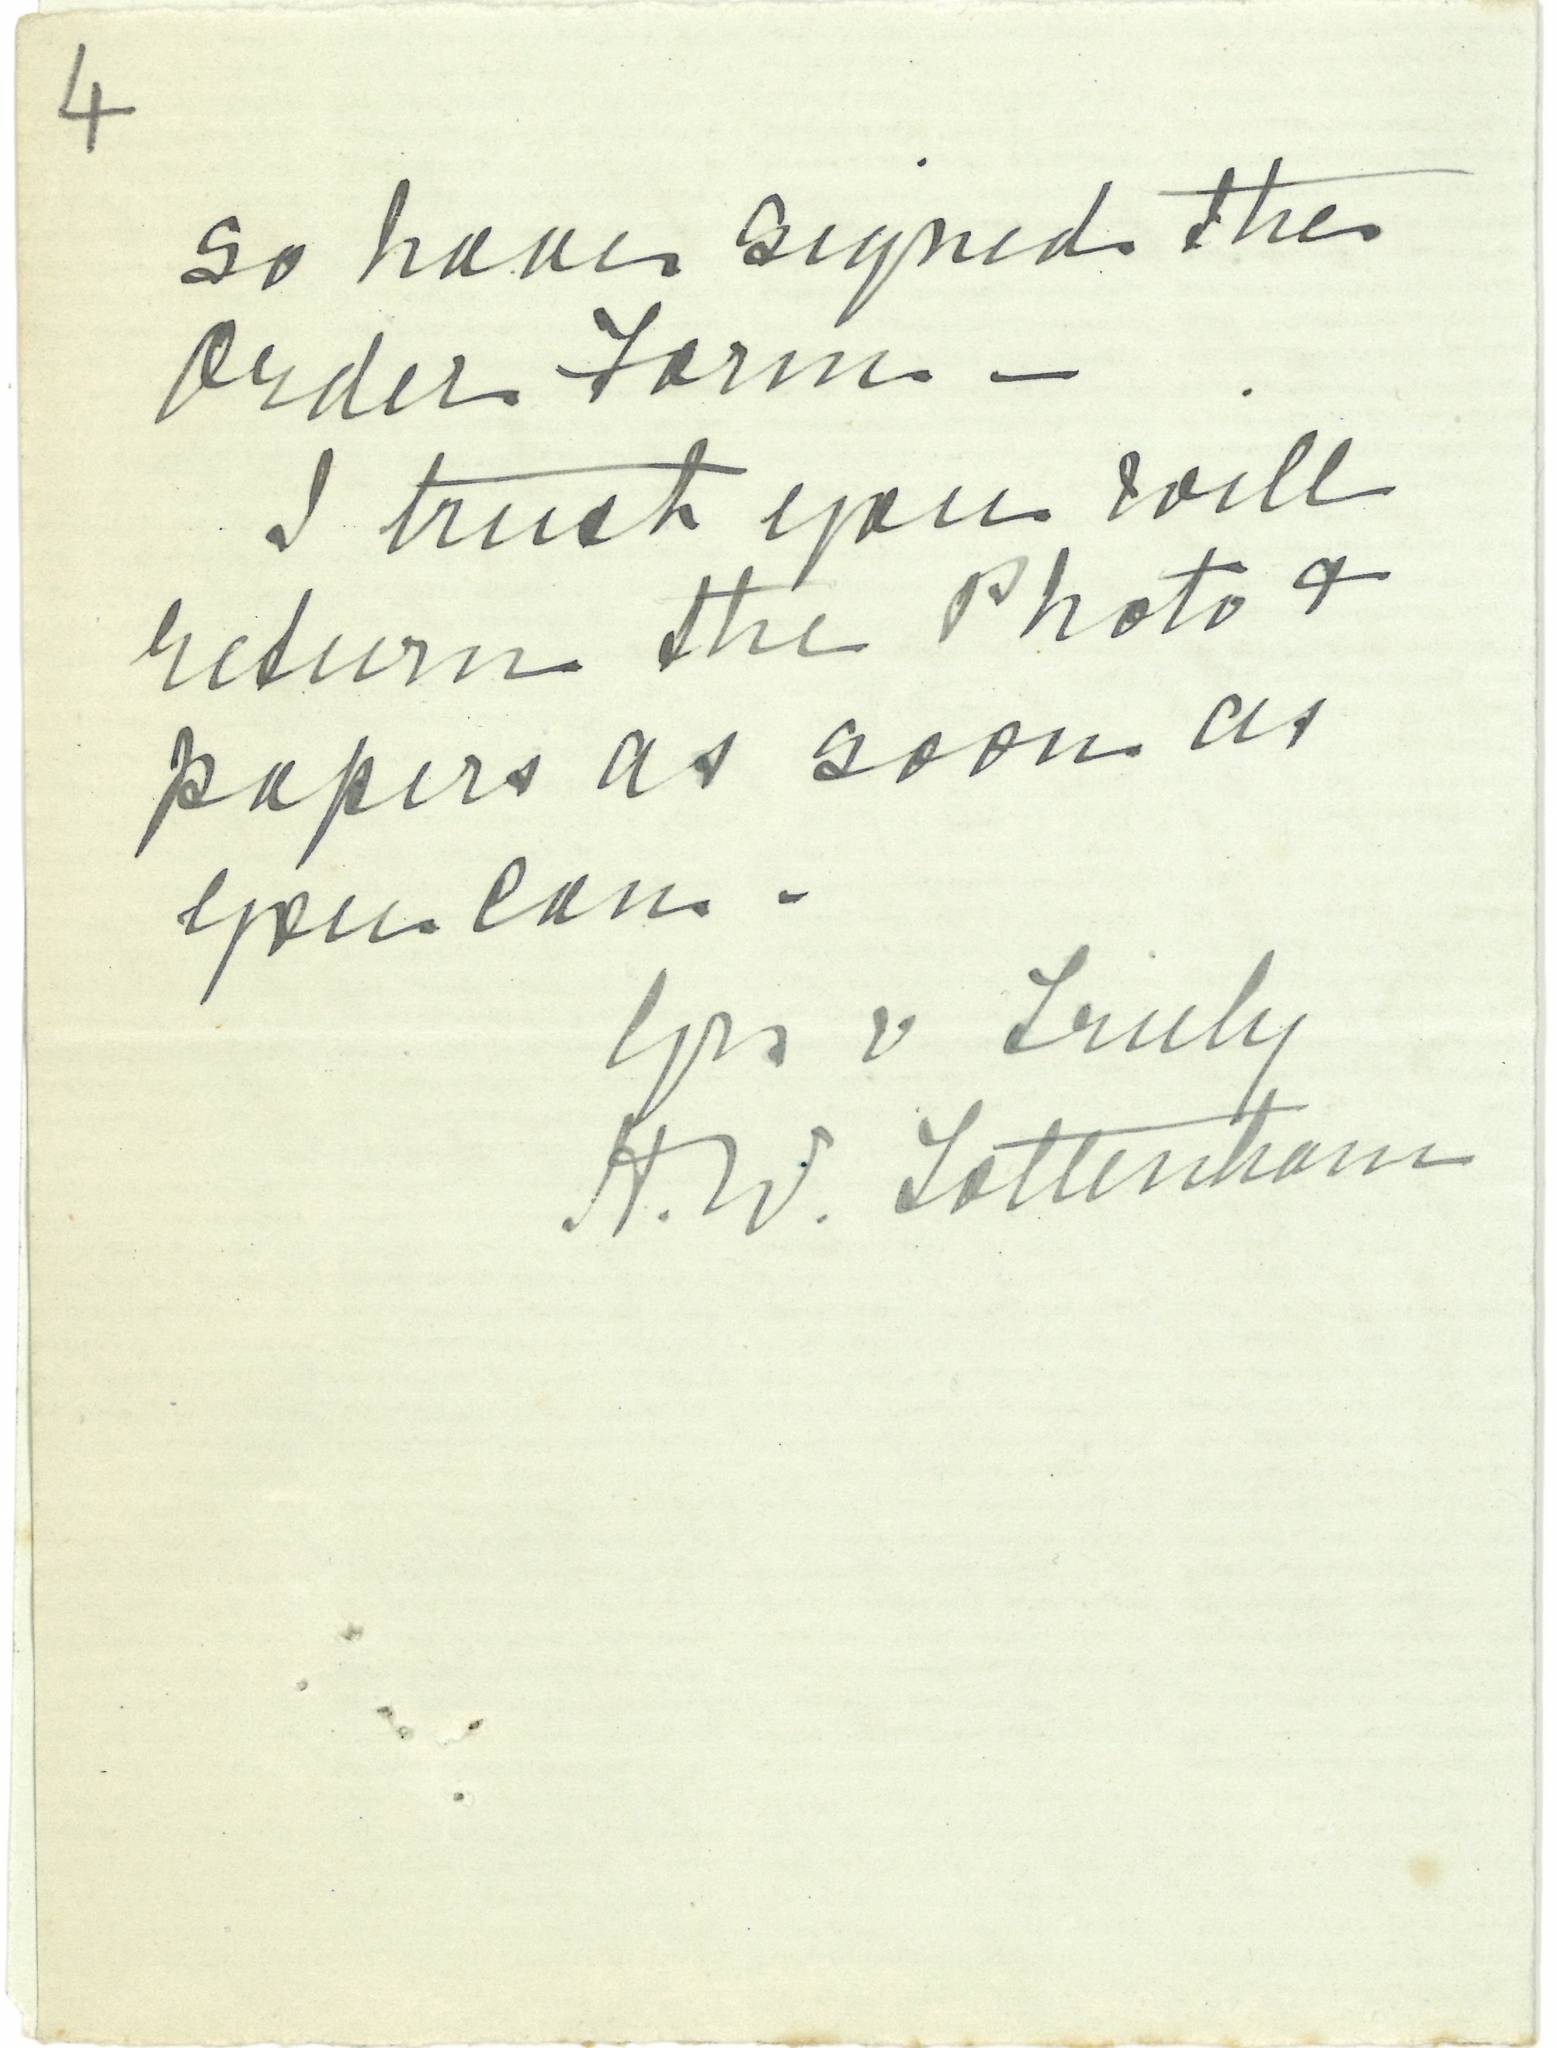 4
so have signed the
Order Form —
I trust you will
return the Photo &
papers as soon as
you can -
Yrs v Truly
H. W. Tottenham